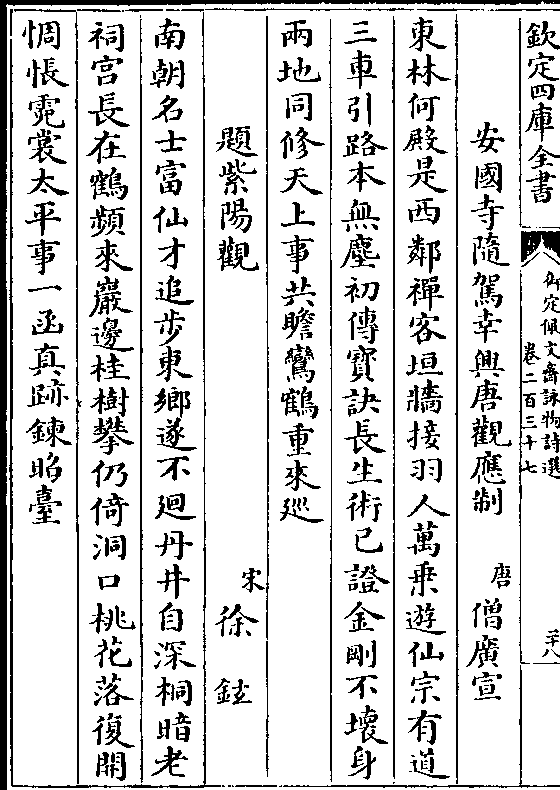 欽定四庫全書
御定佩文齋詠物詩選
卷二百三十七
二十八
安國寺隨駕幸興唐觀應制
唐
僧廣宣
東林何殿是西鄰禪客垣牆接羽人萬乗遊仙宗有道
三車引路本無塵初傳寶訣長生術已證金剛不壞身
兩地同修天上事共瞻鸞鶴重來巡
題紫陽觀
宋
徐鉉
南朝名士富仙才追步東鄉遂不迴丹井自深桐暗老
祠宮長在鶴頻來巖邊桂樹攀仍倚洞口桃花落復開
惆悵霓裳太平事一函真跡鎖昭臺